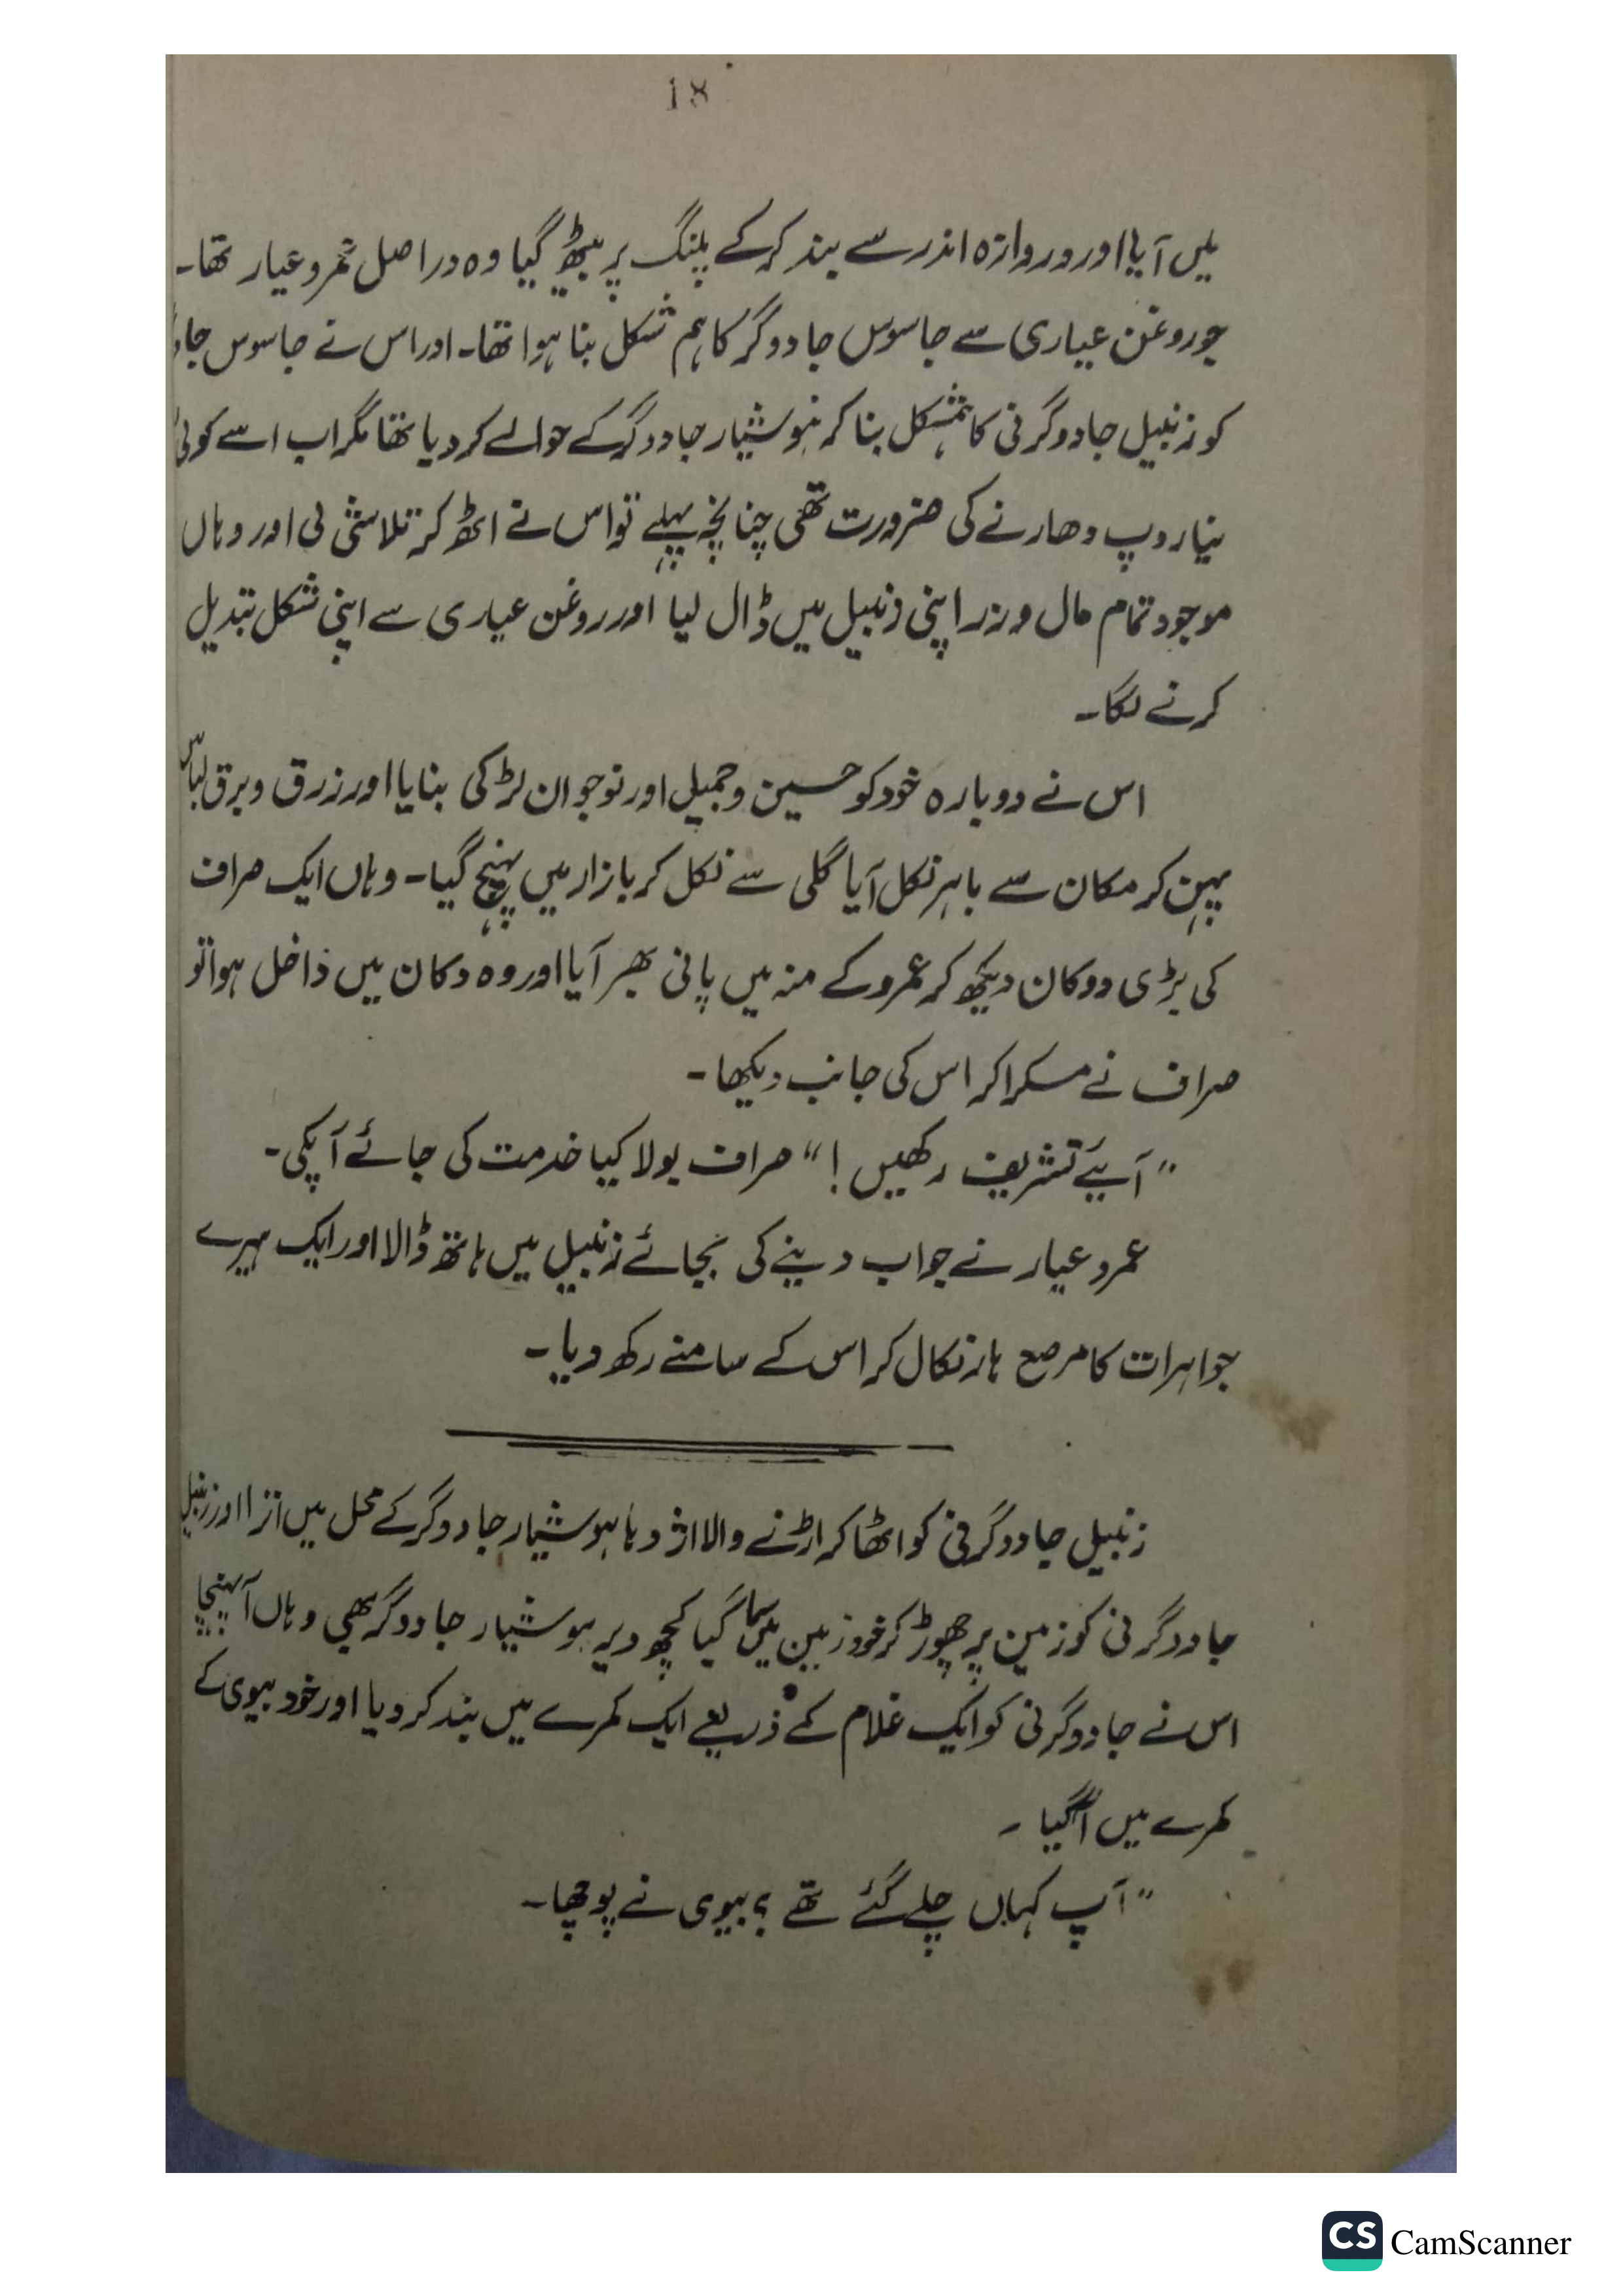 18
میں آیا اور دروازہ اندر سے بند کر کے پلنگ پر بیٹھ گیا وہ دراصل عمرو عیار تھا۔
جو روغن عیاری سے جاسوس جادوگر کا ہم شکل بنا ہوا تھا۔ اور اس نے جاسوس
کو زنبیل جادوگرنی کا ہمشکل بنا کر ہوشیار جادوگر کے حوالے کر دیا تھا مگر اب اسے کوئی
نیا روپ دھارنے کی ضرورت تھی چنانچہ پہلے تو اس نے اٹھ کر تلاشی لی اور وہاں
موجود تمام مال و زر اپنی زنبیل میں ڈال لیا اور روغن عیاری سے اپنی شکل تبدیل
کرنے لگا۔
اس نے دوبارہ خود کو حسین و جمیل اور نوجوان لڑکی بنایا اور زرق و برق لباس
پہن کر مکان سے باہر نکل آیا گلی سے نکل کر بازار میں پہنچ گیا۔ وہاں ایک صراف
کی بڑی دوکان دیکھ کر عمرو کے منہ میں پانی بھر آیا اور وہ دکان میں داخل ہوا تو
صراف نے مسکرا کر اس کی جانب دیکھا۔
”آیئے تشریف رکھیں !“ صراف بولا کیا خدمت کی جائے آپکی۔
عمرو عیار نے جواب دینے کی بجائے زنبیل میں ہاتھ ڈالا اور ایک ہیرے
جواہرات کا مرصع ہار نکال کر اس کے سامنے رکھ دیا۔
زنبیل جادوگرنی کو اٹھا کر اڑنے والا اژدہا ہوشیار جادوگر کے محل میں اترا اور زنبیل
جادوگرنی کو زمین پر چھوڑ کر خود زمین میں سما گیا کچھ دیر ہوشیار جادوگر بھی وہاں آ پہنچا
اس نے جادوگرنی کو ایک غلام کے ذریعے ایک کمرے میں بند کر دیا اور خود بیوی کے
کمرے میں آگیا ۔
”آپ کہاں چلے گئے تھے ؟ بیوی نے پوچھا۔
CS CamScanner